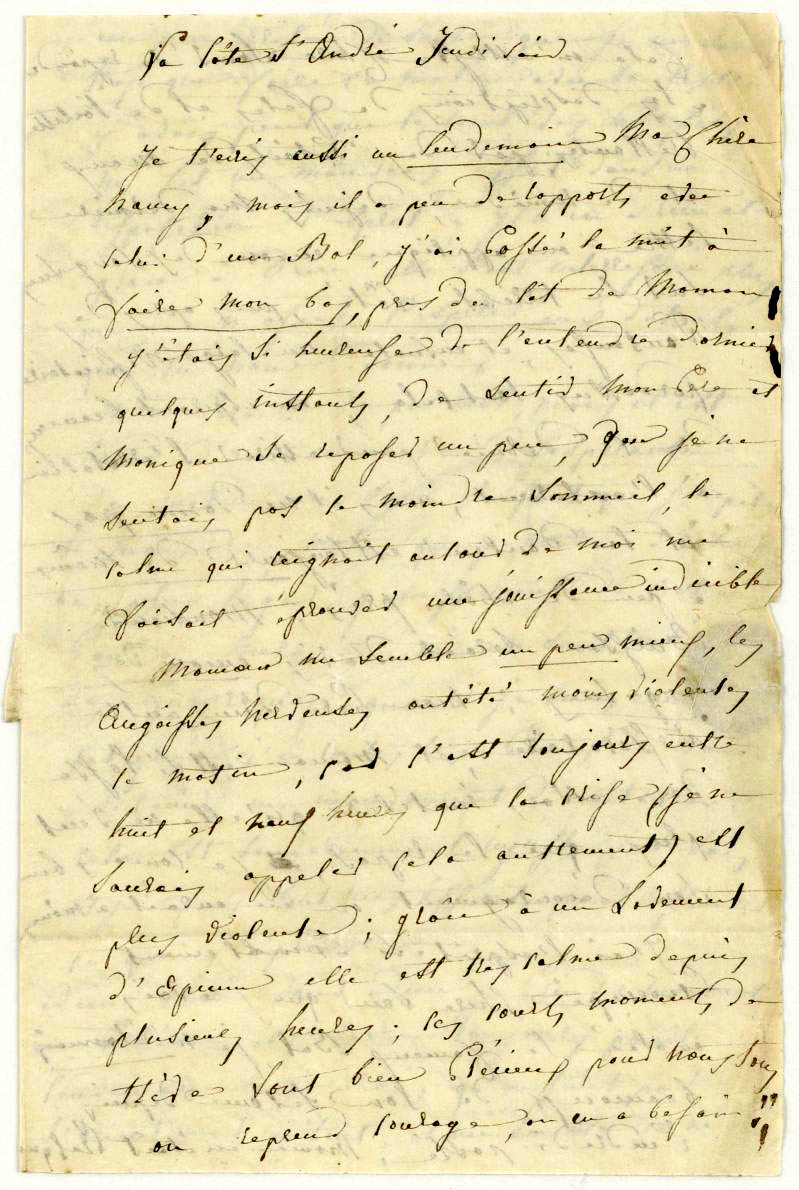 La Côte St André Jeudi soir
Je t'écris aussi un lendemain Ma Chère
Nancy, mais il a peu de rapports avec
celui d'un Bal, j'ai passé la nuit à
faire mon bas, près du lit de Maman
j'étais si heureuse de l'entendre dormir
quelques instants, de sentir mon Père et
Monique se reposer un peu, que je ne
sentais pas le moindre sommeil, le
calme qui régnait autour de moi me
faisait éprouver une jouissance indicible
Maman me semble un peu mieux, les
angoisses nerveuses ont été moins violentes
le matin, car c'est toujours entre
huit et neuf heures que la crise (je ne
saurais appeler cela autrement) est
plus violente; grâce à un Lavement
d'opium elle est très calme depuis
plusieurs heures; ces courts moments de
trève sont bien précieux pour nous tous
on reprend courage, on en a besoin!!